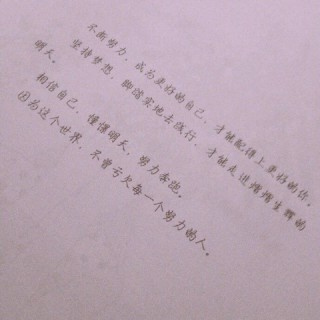 不断努力，成为更好的自己，才能配得上更好的你。
坚持梦想，脚踏实地去践行，才能走进熠熠生辉的
明天。
相信自己，憧憬明天，努力奔跑。
因为这个世界，不曾亏欠每一个努力的人。